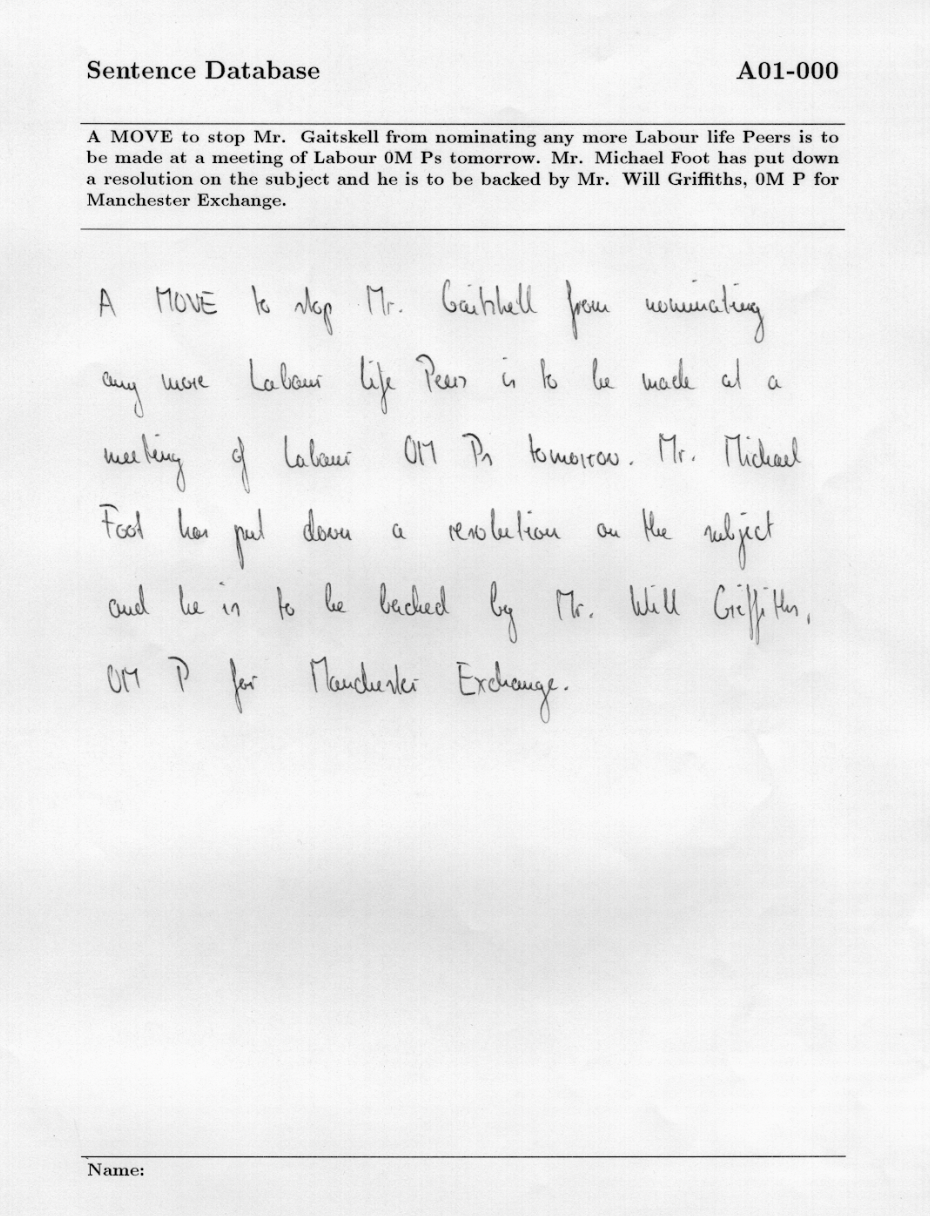 Sentence Database A01-000
A MOVE to stop Mr. Gaitskell from nominating any more Labour life Peers is to
be made at a meeting of Labour 0M Ps tomorrow. Mr. Michael Foot has put down
a resolution on the subject and he is to be backed by Mr. Will Griffiths, 0M P for
Manchester Exchange.
A MOVE to stop Mr. Gaitskell from nominating
any more Labour life Peers is to be made at a
meeting of Labour OM Ps tomorrow. Mr. Michael
Foot has put down a resolution on the subject
and he is to be backed by Mr. Will Griffiths,
OM P for Manchester Exchange.
Name: